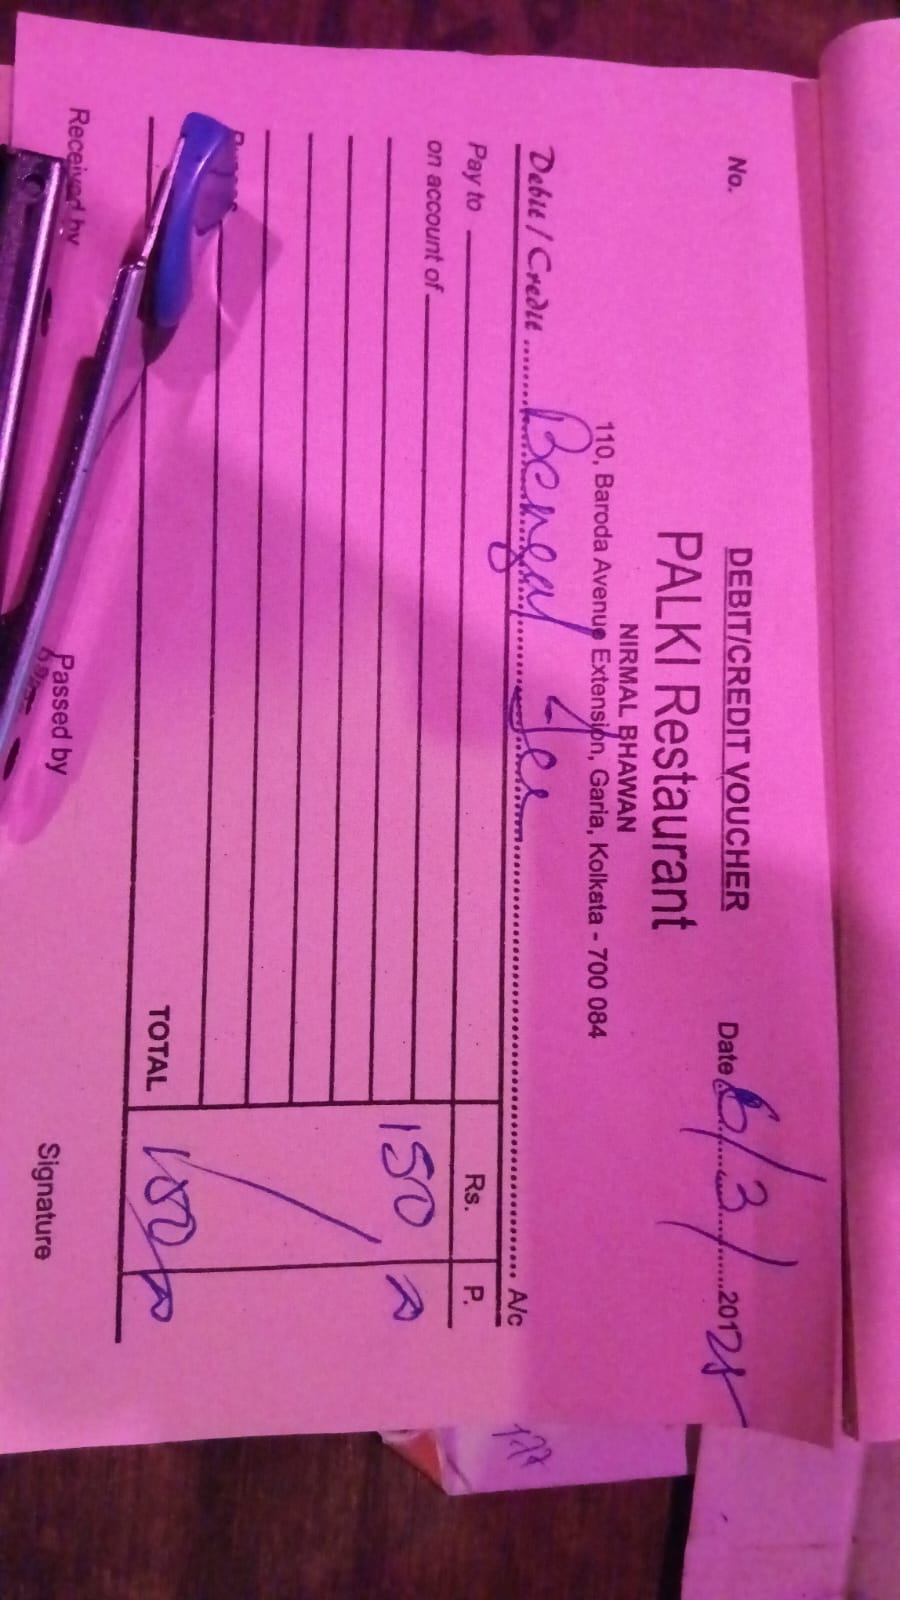 DEBIT/CREDIT VOUCHER
No. Date 6/3/ 20125
PALKI Restaurant
NIRMAL BHAWAN
110, Baroda Avenue Extension, Garia, Kolkata - 700 084
Debit / Credit Bengal A/c
Pay to Rs. P.
on account of 150
TOTAL 150
Received by Passed by Signature